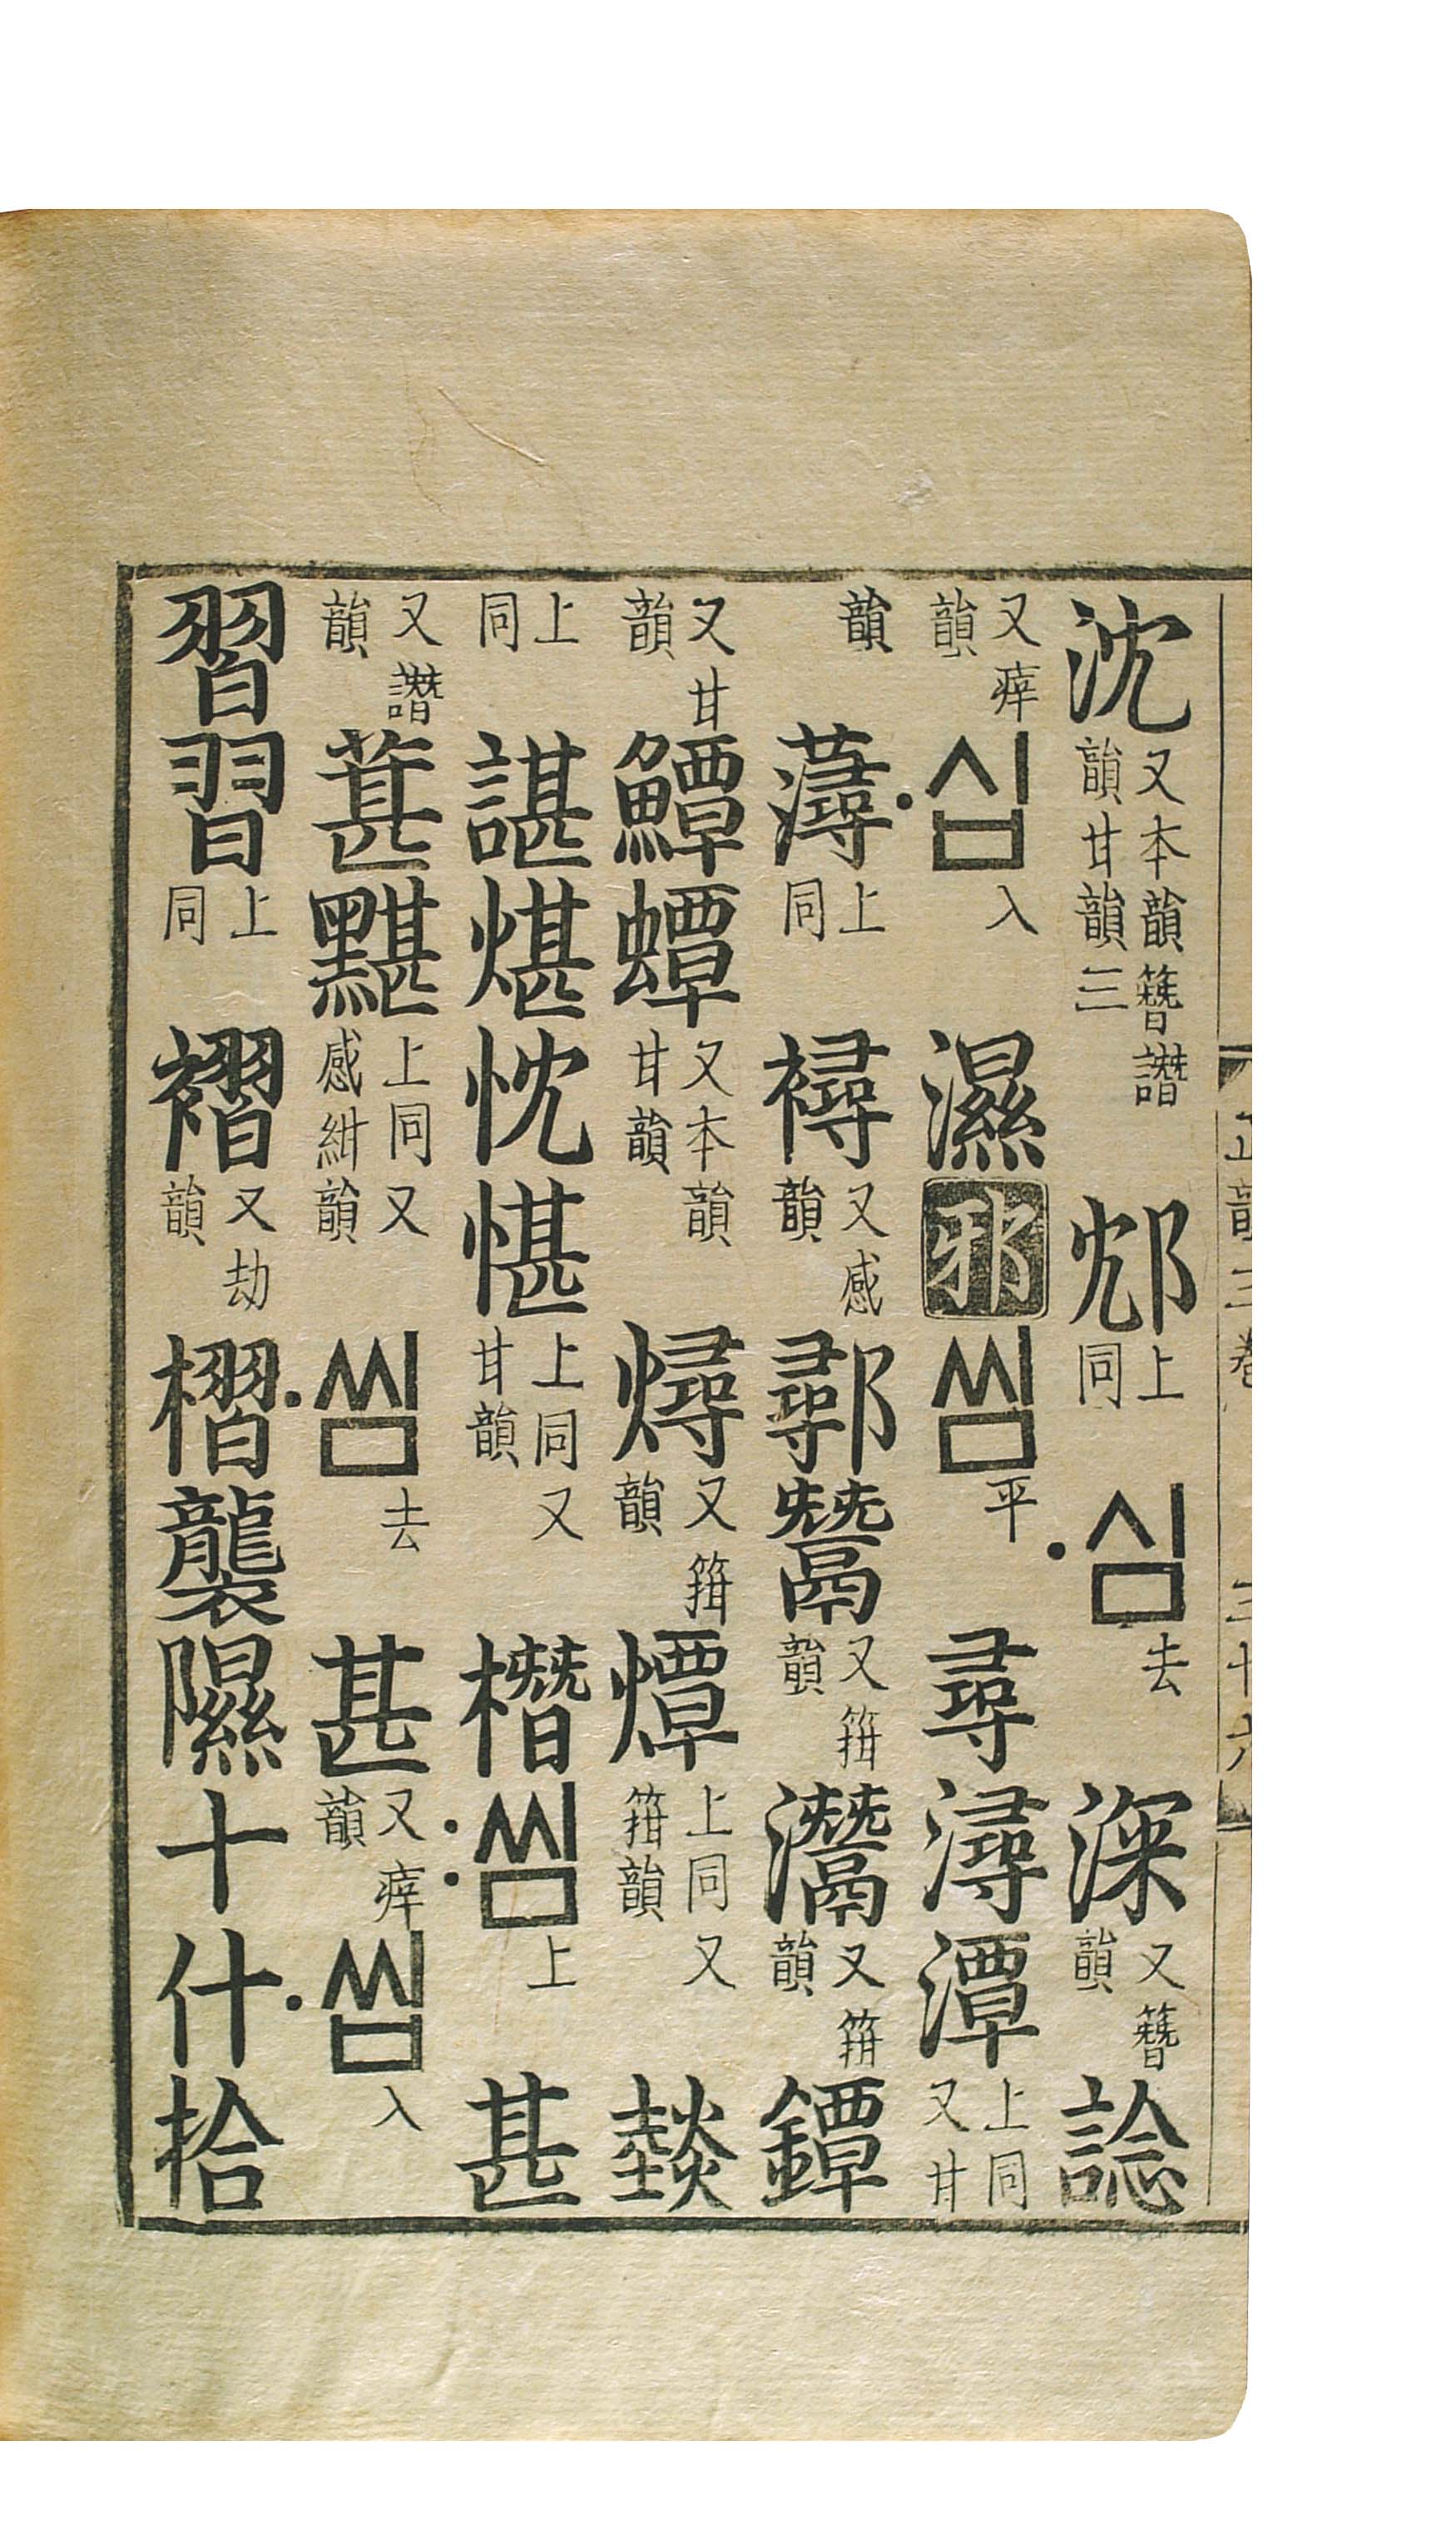 沈又本韻簪譖韻甘韻三邥上同심去深又簪韻諗
又瘁韻심入濕邪씸平尋潯潭上同又甘
韻蕁上同襑又感韻鄩鬵又箝韻灊又箝韻鐔
又甘韻鱏蟫又本韻甘韻燖又箝韻燂上同又箝韻燅
上同諶煁忱愖上同又甘韻橬씸上甚
又譖韻葚黮上同又感紺韻씸去甚又瘁韻씸入
習習上同褶又劫韻槢襲隰十什拾